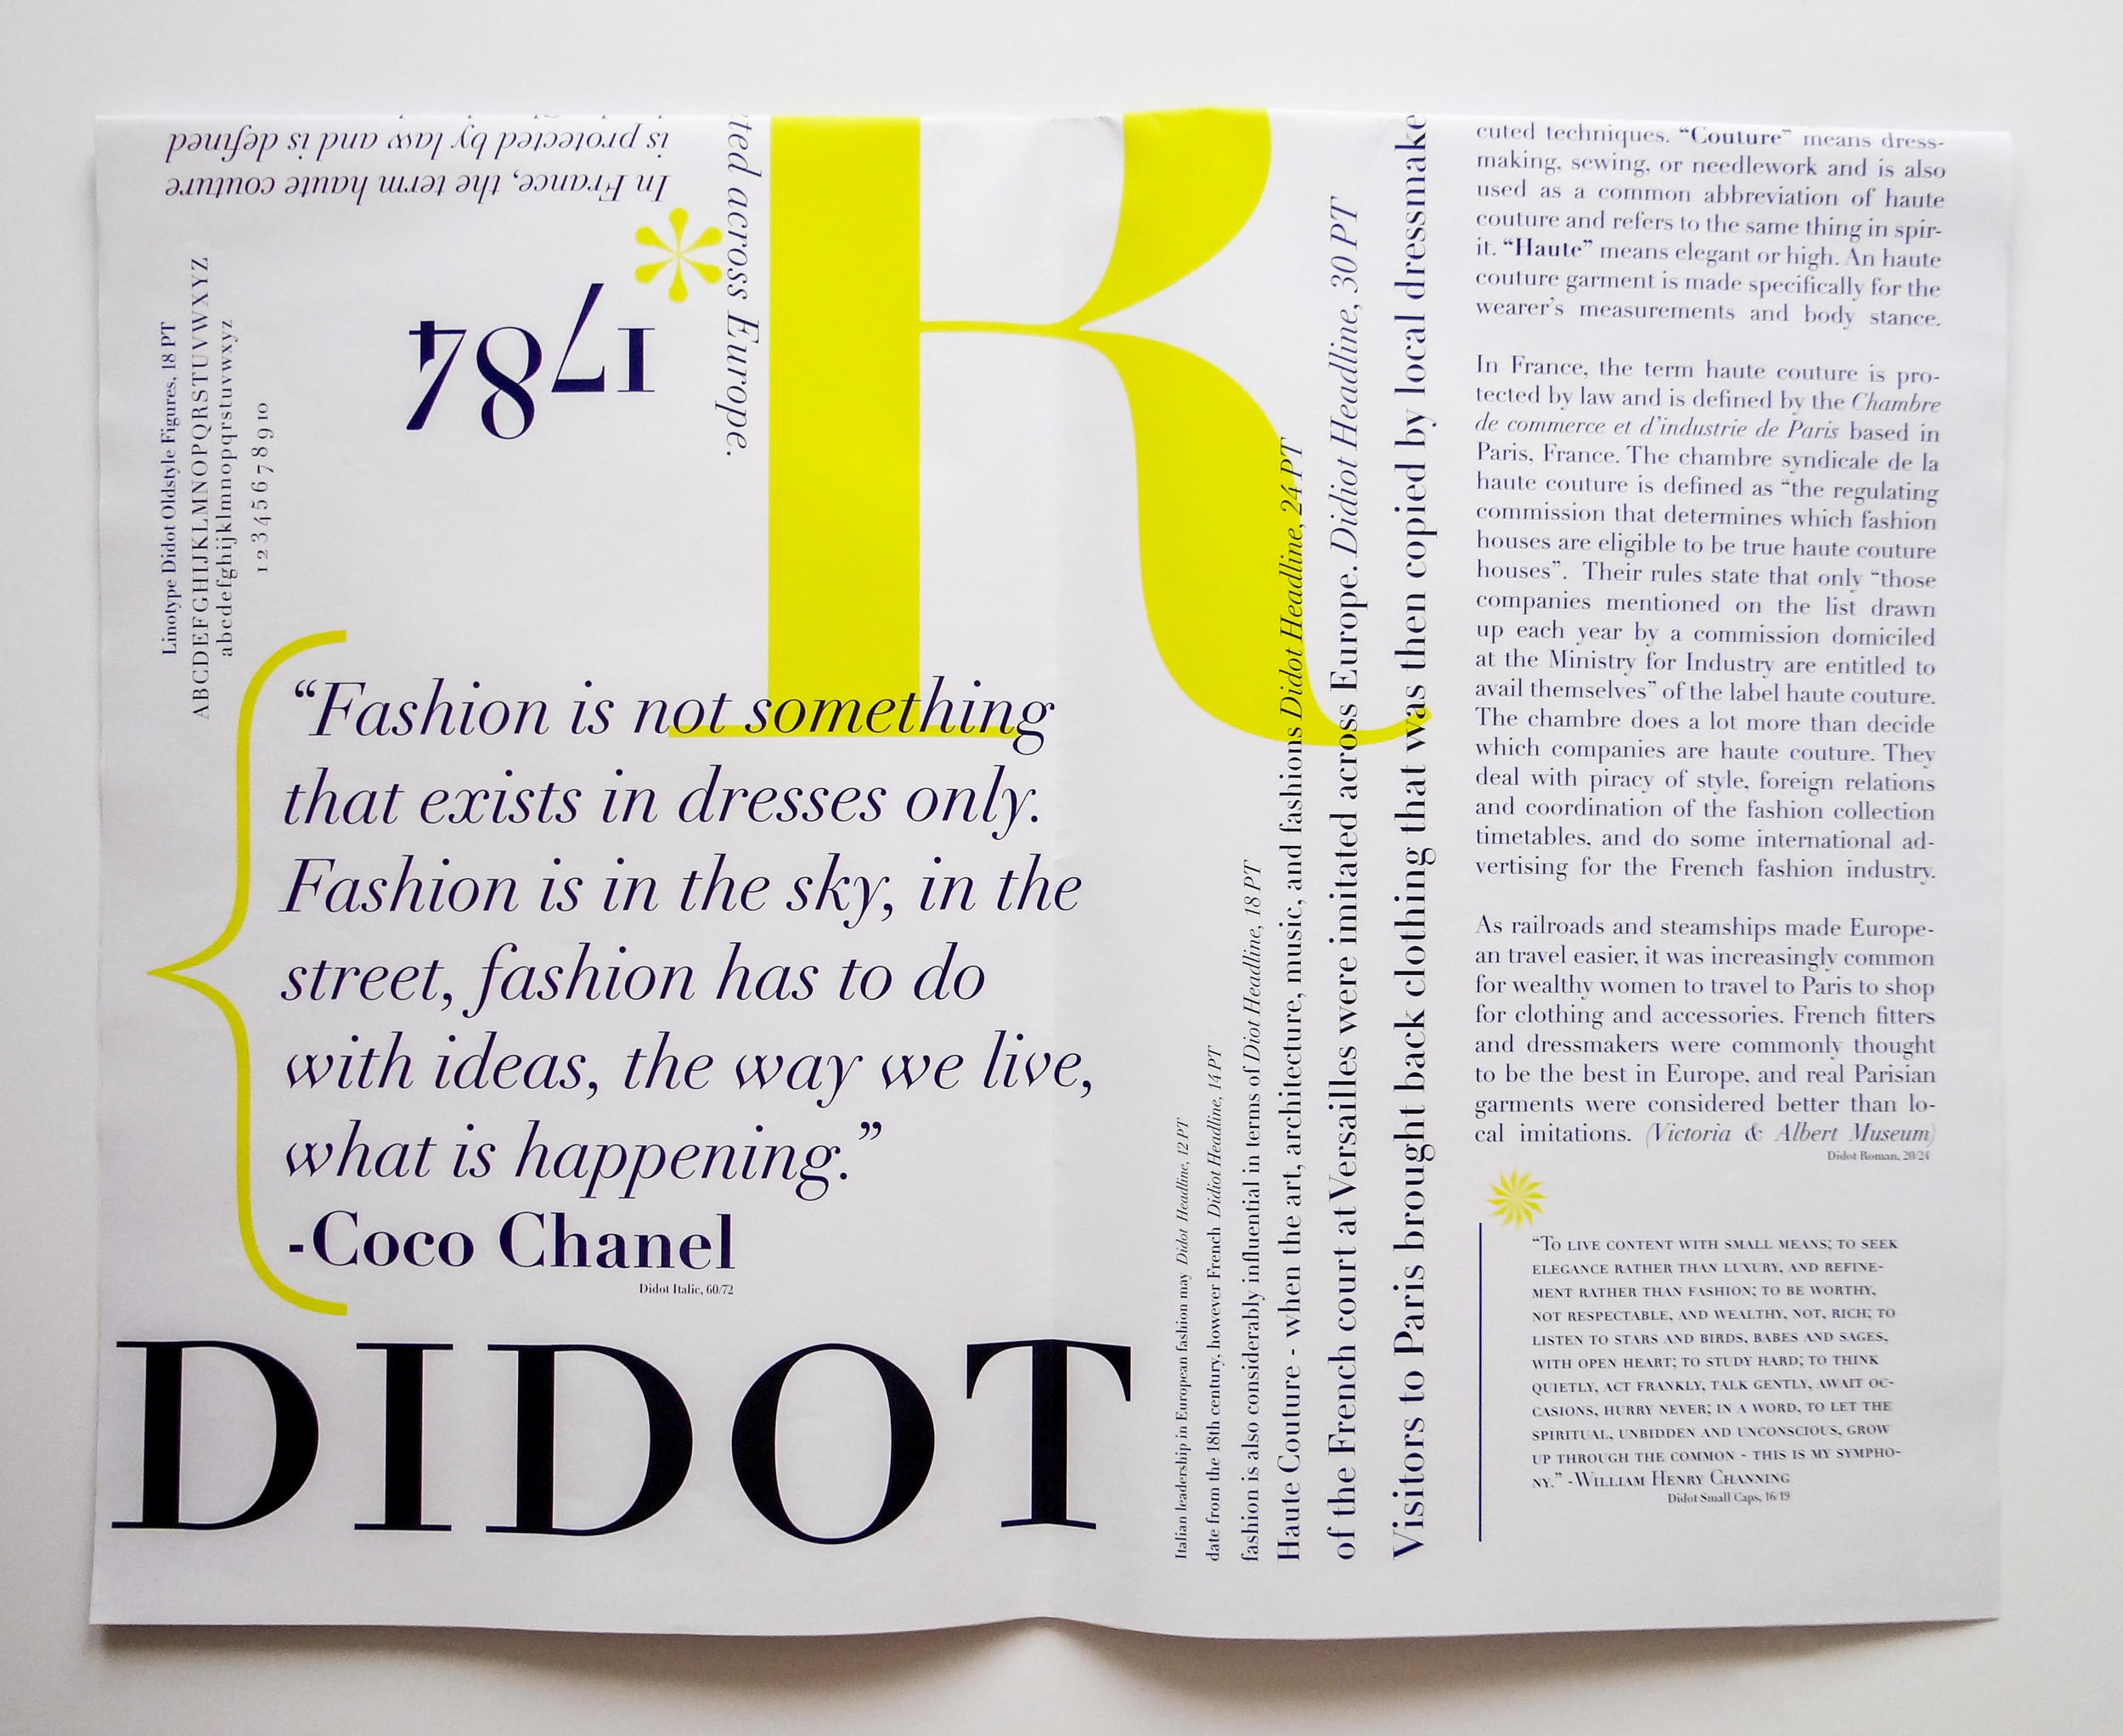 In France, the term haute couture
is protected by law and is defined
ted across Europe.
R
*
1784
Linotype Didot Oldstyle Figures, 18 PT
ABCDEFGHIJKLMNOPQRSTUVWXYZ
abcdefghijklmnopqrstuvwxyz
1 2 3 4 5 6 7 8 9 10
{
“Fashion is not something
that exists in dresses only.
Fashion is in the sky, in the
street, fashion has to do
with ideas, the way we live,
what is happening.”
-Coco Chanel
Didot Italic, 60/72
DIDOT
Italian leadership in European fashion may Didot Headline, 12 PT
date from the 18th century, however French Didiot Headline, 14 PT
fashion is also considerably influential in terms of Diot Headline, 18 PT
Haute Couture - when the art, architecture, music, and fashions Didot Headline, 24 PT
of the French court at Versailles were imitated across Europe. Didiot Headline, 30 PT
Visitors to Paris brought back clothing that was then copied by local dressmake
cuted techniques. “Couture” means dress-
making, sewing, or needlework and is also
used as a common abbreviation of haute
couture and refers to the same thing in spir-
it. “Haute” means elegant or high. An haute
couture garment is made specifically for the
wearer’s measurements and body stance.
In France, the term haute couture is pro-
tected by law and is defined by the Chambre
de commerce et d’industrie de Paris based in
Paris, France. The chambre syndicale de la
haute couture is defined as “the regulating
commission that determines which fashion
houses are eligible to be true haute couture
houses”. Their rules state that only “those
companies mentioned on the list drawn
up each year by a commission domiciled
at the Ministry for Industry are entitled to
avail themselves” of the label haute couture.
The chambre does a lot more than decide
which companies are haute couture. They
deal with piracy of style, foreign relations
and coordination of the fashion collection
timetables, and do some international ad-
vertising for the French fashion industry.
As railroads and steamships made Europe-
an travel easier, it was increasingly common
for wealthy women to travel to Paris to shop
for clothing and accessories. French fitters
and dressmakers were commonly thought
to be the best in Europe, and real Parisian
garments were considered better than lo-
cal imitations. (Victoria & Albert Museum)
Didot Roman, 20/24
“To live content with small means; to seek
elegance rather than luxury, and refine-
ment rather than fashion; to be worthy,
not respectable, and wealthy, not, rich; to
listen to stars and birds, babes and sages,
with open heart; to study hard; to think
quietly, act frankly, talk gently, await oc-
casions, hurry never; in a word, to let the
spiritual, unbidden and unconscious, grow
up through the common - this is my sympho-
ny.” -William Henry Channing
Didot Small Caps, 16/19